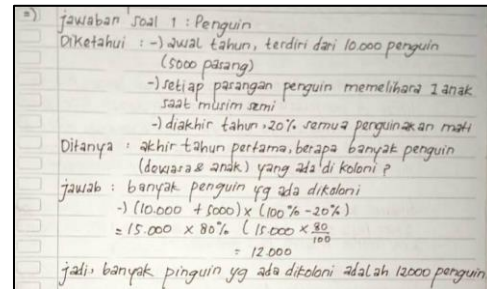 jawaban soal 1 : Penguin
Diketahui : -) awal tahun, terdiri dari 10.000 penguin
(5000 pasang)
-) setiap pasangan penguin memelihara 1 anak
saat musim semi
-) diakhir tahun, 20% semua penguin akan mati
Ditanya : akhir tahun pertama, berapa banyak penguin
(dewasa & anak) yang ada di koloni ?
jawab : banyak penguin yg ada dikoloni
-) (10.000 + 5000) x (100% - 20%)
= 15.000 x 80% ( 15.000 x 80/100
= 12.000
jadi, banyak pinguin yg ada dikoloni adalah 12000 penguin